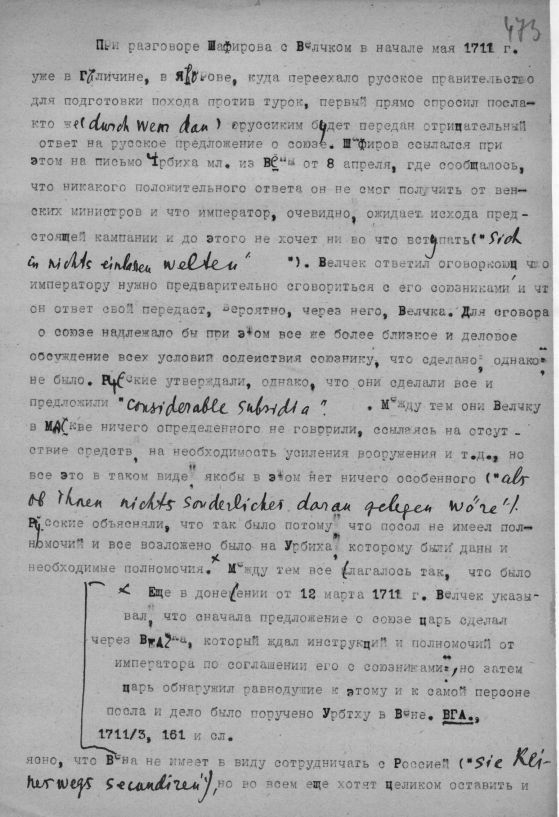 473
При разговоре Шафирова с Велчком в начале мая 1711 г.
уже в Галичине, в Яворове, куда переехало русское правительство
для подготовки похода против турок, первый прямо спросил посла-
кто же (durch wem dan) русскиким будет передан отрицательный
ответ на русское предложение о союзе. Шафиров ссылался при
этом на письмо Урбиха мл. из Вены от 8 апреля, где сообщалось,
что никакого положительного ответа он не смог получить от вен-
ских министров и что император, очевидно, ожидает исхода пред-
стоящей кампании и до этого не хочет ни во что вступать ("sich
in nichts einlassen welten"). Велчек ответил оговоркою, что
императору нужно предварительно сговориться с его союзниками и чт
он ответ свой передаст, вероятно, через него, Велчка. Для сговора
о союзе надлежало бы при этом все же более близкое и деловое
обсуждение всех условий содействия союзнику, что сделано, однако,
не было. Русские утверждали, однако, что они сделали все и
предложили "considerable subsidia". Между тем они Велчку
в Москве ничего определенного не говорили, ссылаясь на отсут-
ствие средств, на необходимость усиления вооружения и т.д., но
все это в таком виде, якобы в этом нет ничего особенного ("als
ob Ihnen nichts sonderliches daran gelegen wöre").
Русские объясняли, что так было потому, что посол не имел пол-
номочий и все возложено было на Урбиха, которому были даны и
необходимые полномочия.x Между тем все слагалось так, что было
x Еще в донесении от 12 марта 1711 г. Велчек указы-
вал, что сначала предложение о союзе царь сделал
через Велчка, который ждал инструкций и полномочий от
императора по соглашении его с союзниками, но затем
царь обнаружил равнодушие к этому и к самой персоне
посла и дело было поручено Урбтху в Вене. ВГА.,
1711/3, 161 и сл.
ясно, что Вена не имеет в виду сотрудничать с Россией ("sie Kei-
nerwegs secondiren"), но во всем еще хотят целиком оставить и